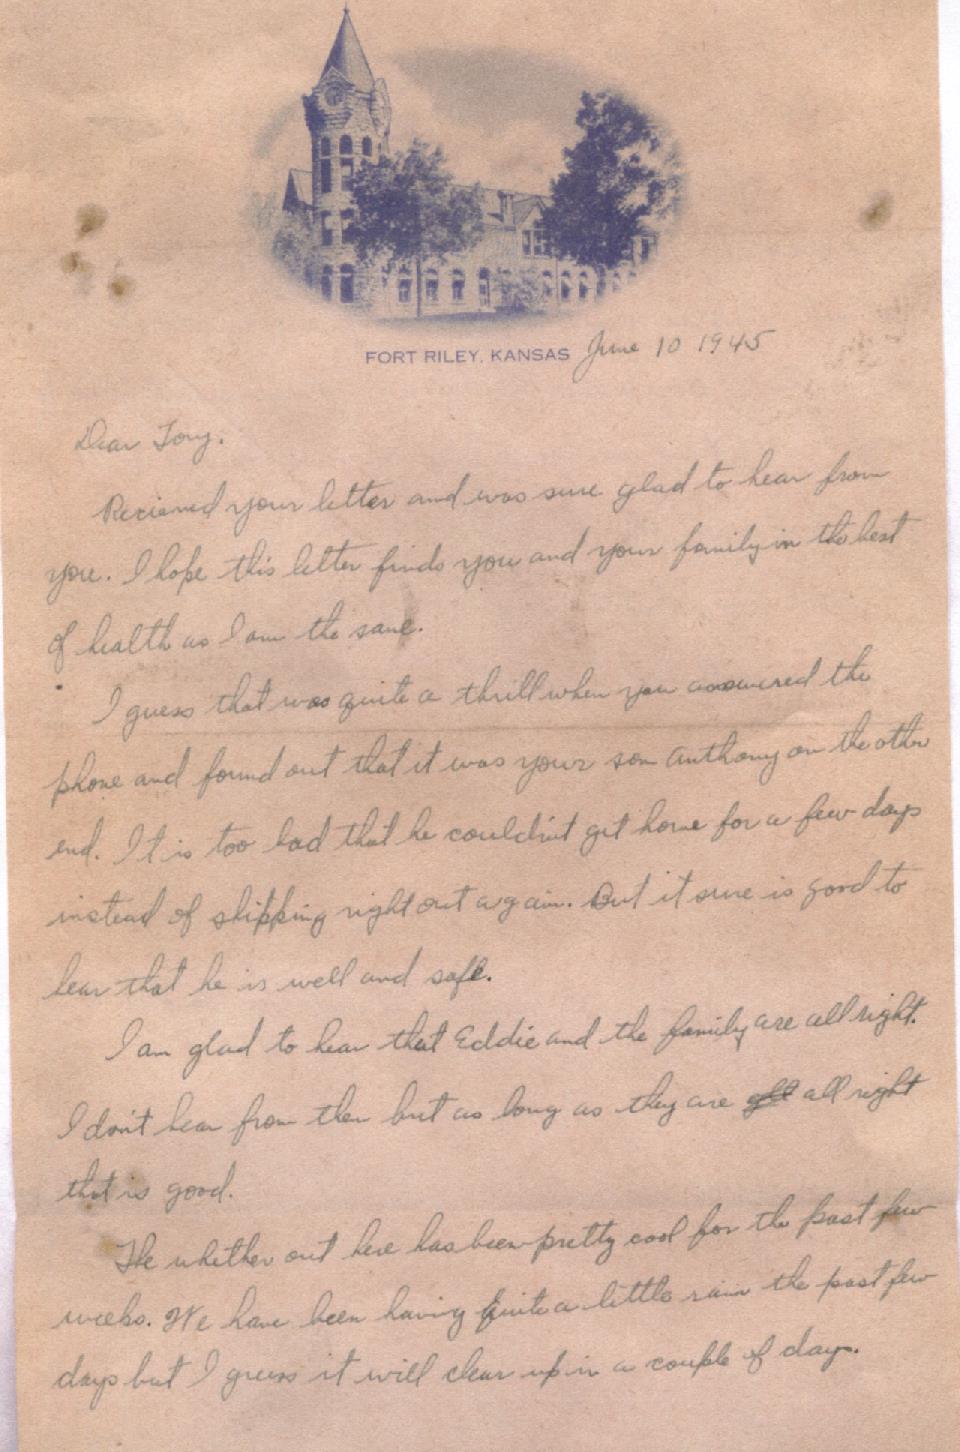 FORT RILEY, KANSAS June 10 1945
Dear Tony.
Recieved your letter and was sure glad to hear from
you. I hope this letter finds you and your family in the best
of health as I am the same.
I guess that was quite a thrill when you answered the
phone and found out that it was your son Anthony on the other
end. It is too bad that he couldn't get home for a few days
instead of shipping right out again. But it sure is good to
hear that he is well and safe.
I am glad to hear that Eddie and the family are all right.
I don't hear from them but as long as they are all right
that is good.
The whether out here has been pretty cool for the past few
weeks. We have been having quite a little rain the past few
days but I guess it will clear up in a couple of days.